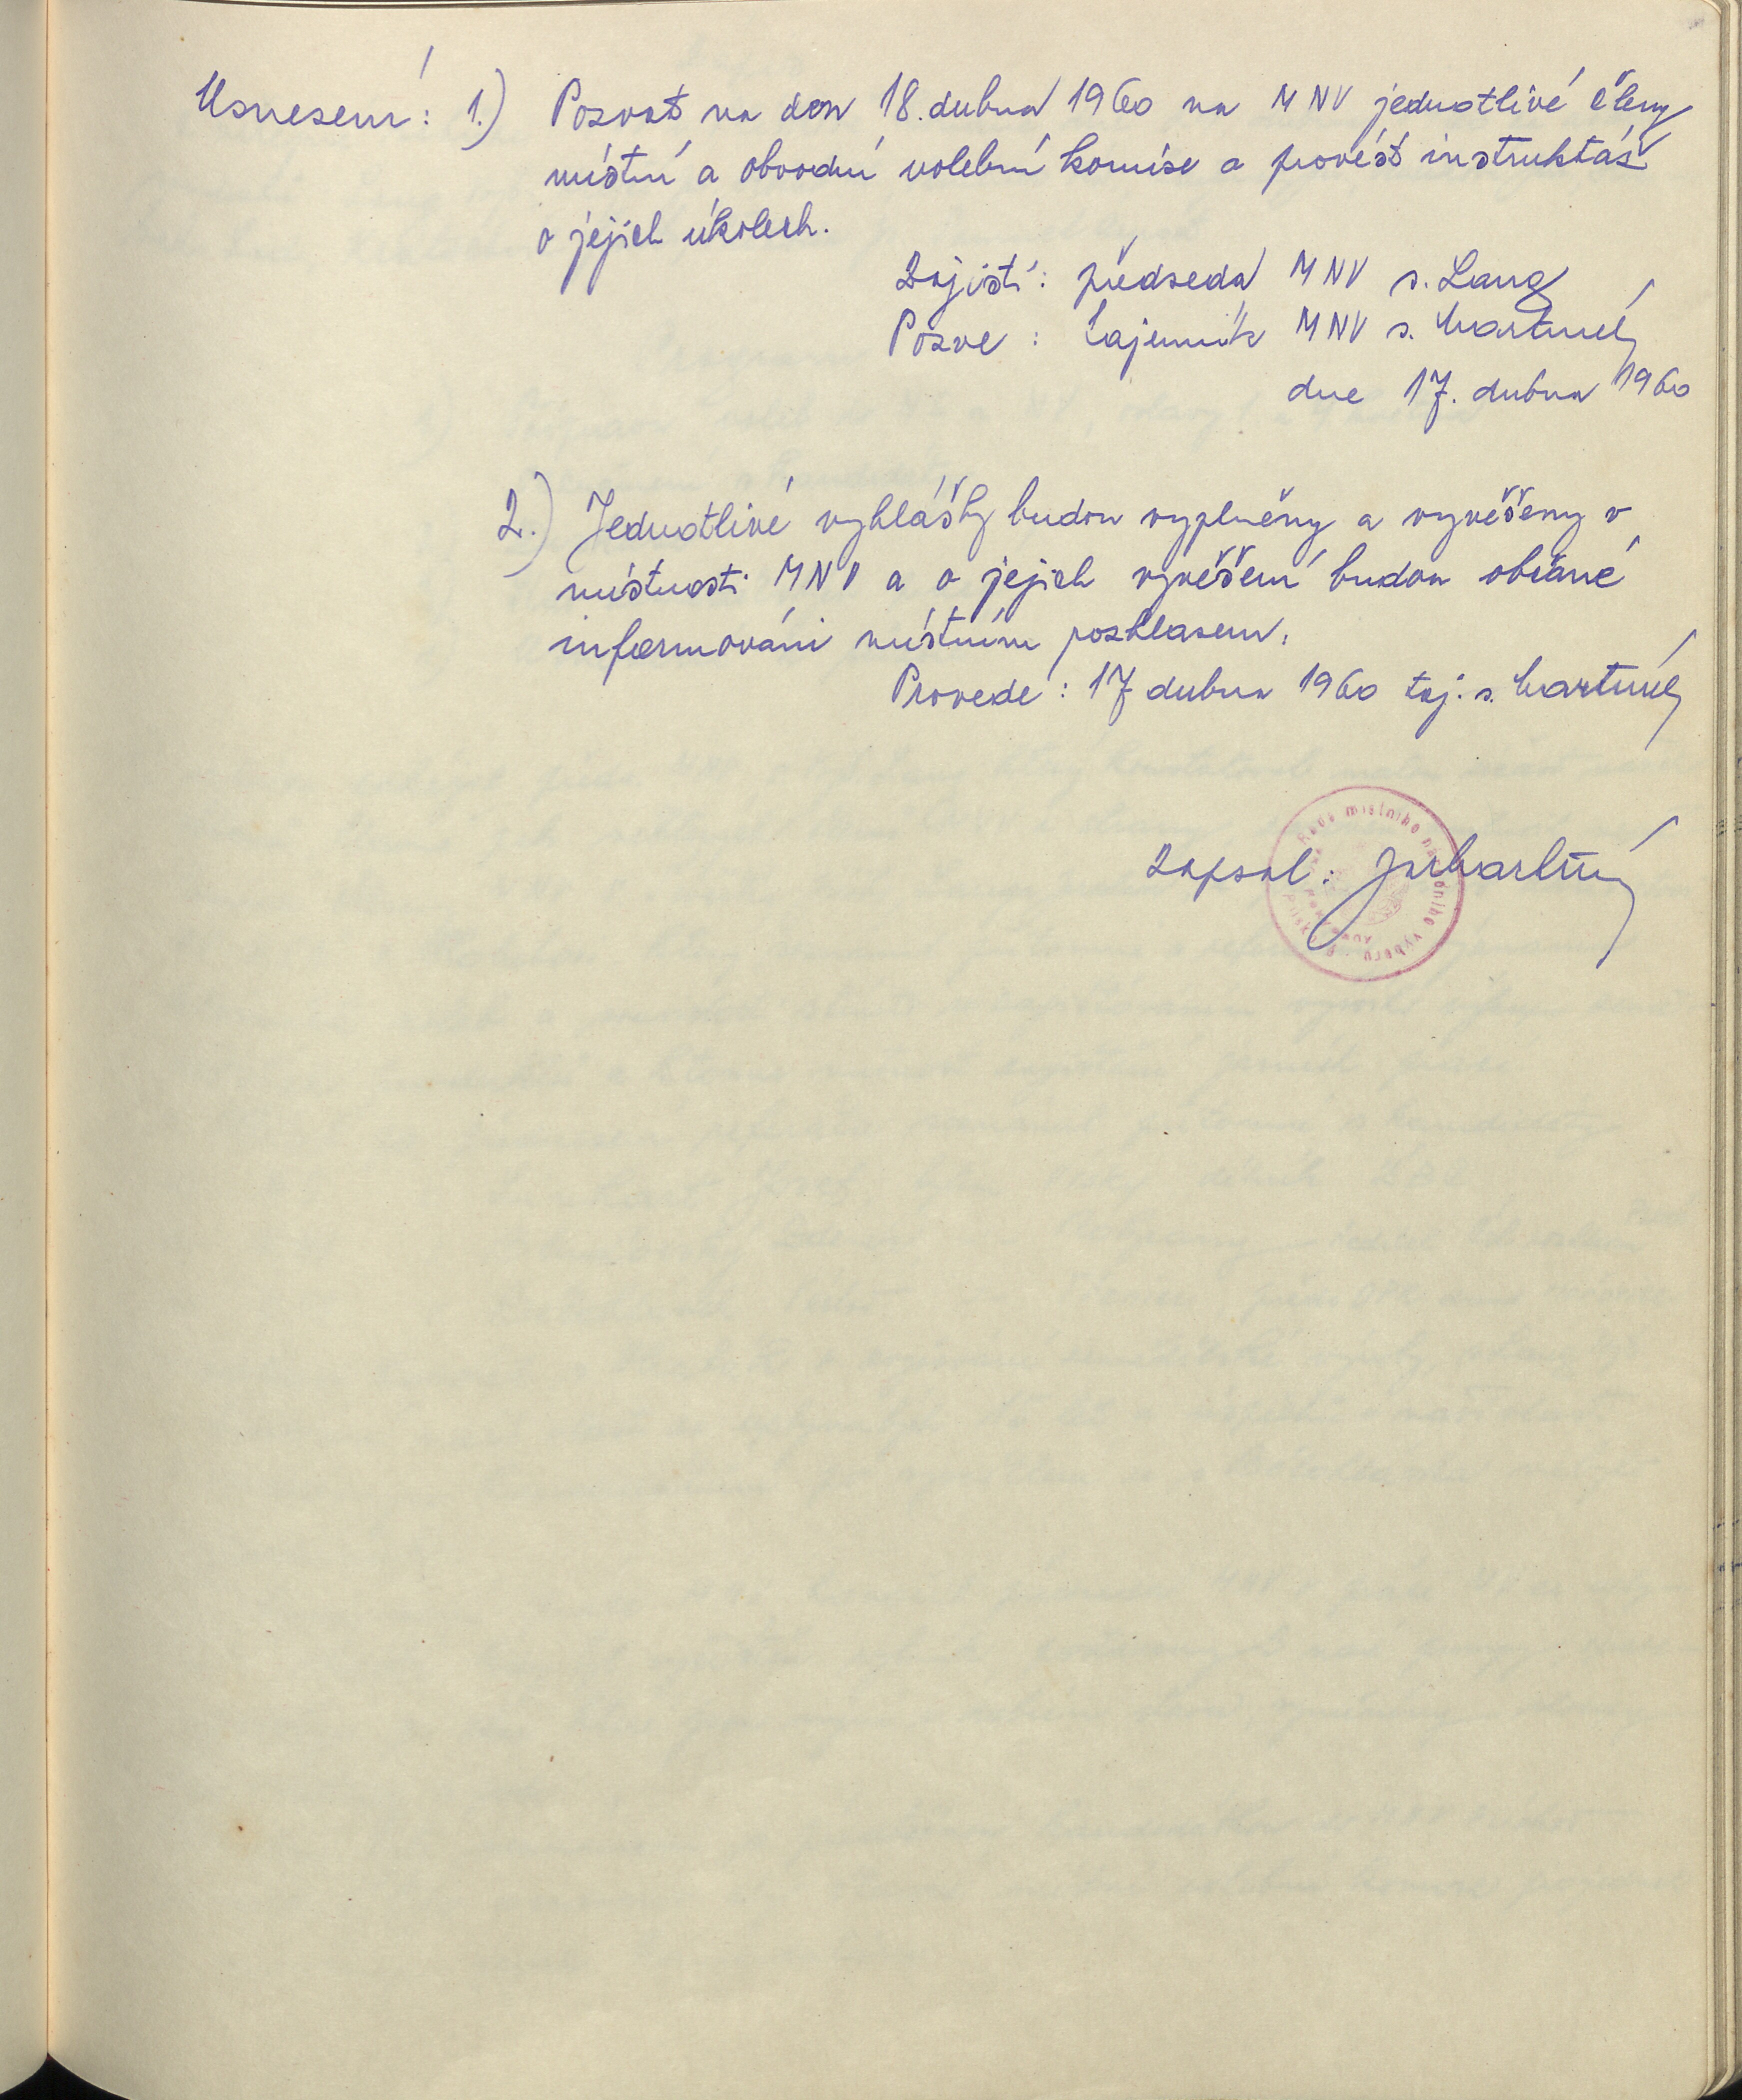 Usnesení: 1.) Pozvat na den 18. dubna 1960 na MNV jednotlivé členy
místní a obvodní volební komise a provést instruktáž
o jejich úkolech.
Zajistí: předseda MNV s. Lang
Pozve: tajemník MNV s. Martinů
dne 17. dubna 1960
2.) Jednotlivé vyhlášky budou vyplněny a vyvěšeny v
místnosti MNV a o jejich vyvěšení budou občané
informováni místním rozhlasem.
Provede: 17 dubna 1960 taj. s.
Zapsal:
Rada místního národního výboru